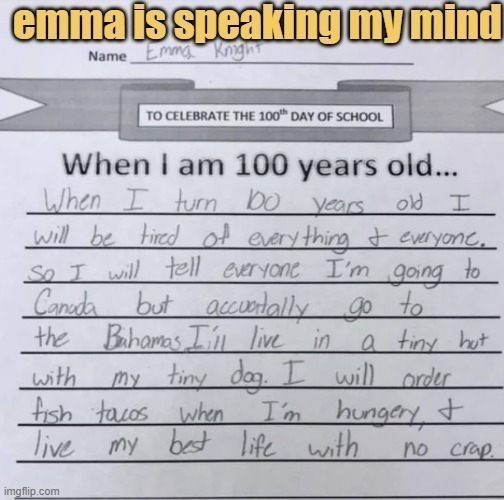 emma is speaking my mind
Name Emma Knight
TO CELEBRATE THE 100th DAY OF SCHOOL
When I am 100 years old...
When I turn 100 years old I
will be tired of everything & everyone.
So I will tell everyone I'm going to
Canada but accuortally go to
the Bahamas. I'ill live in a tiny hut
with my tiny dog. I will order
fish tacos when I'm hungery, &
live my best life with no crap.
imgflip.com